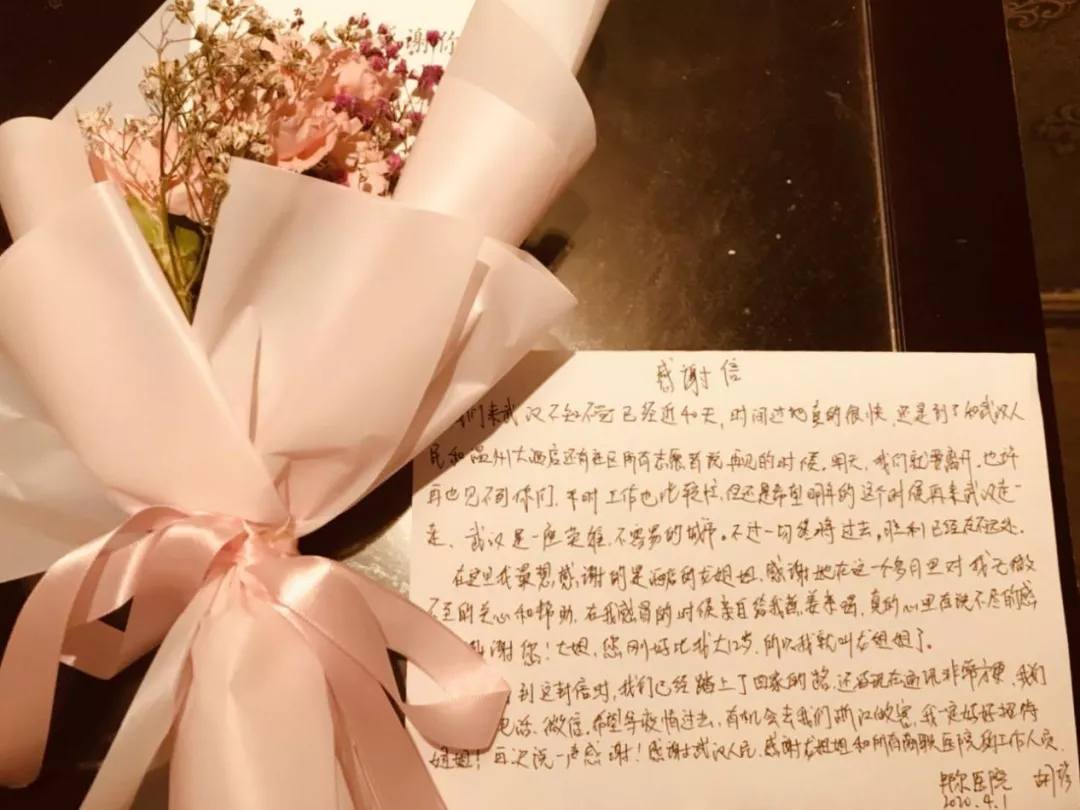 谢你
感谢信
们来武汉不知不觉已经近40天，时间过的真的很快，还是到了和武汉人
民和温州大酒店还有社区所有志愿者说再见的时候。明天，我们就要离开，也许
再也见不到你们，平时工作也比较忙，但还是希望明年的这个时候再来武汉走一
走、武汉是一座英雄、不容易的城市。不过一切终将过去，胜利已经在不远处。
在这里我最想感谢的是酒店的尤姐姐，感谢她在这一个多月里对我无微
不至的关心和帮助，在我感冒的时候亲自给我熬姜来喝，真的心里有说不尽的感
谢您！尤姐，您刚好比我大12岁，所以我就叫尤姐姐了。
到这封信时，我们已经踏上了回家的路，还好现在通讯非常方便，我们
电话、微信，希望等疫情过去，有机会去我们浙江做客，我一定好好招待
姐姐！再次说一声感谢！感谢武汉人民，感谢尤姐姐和所有 医院 工作人员
医院 胡
2020.4.1